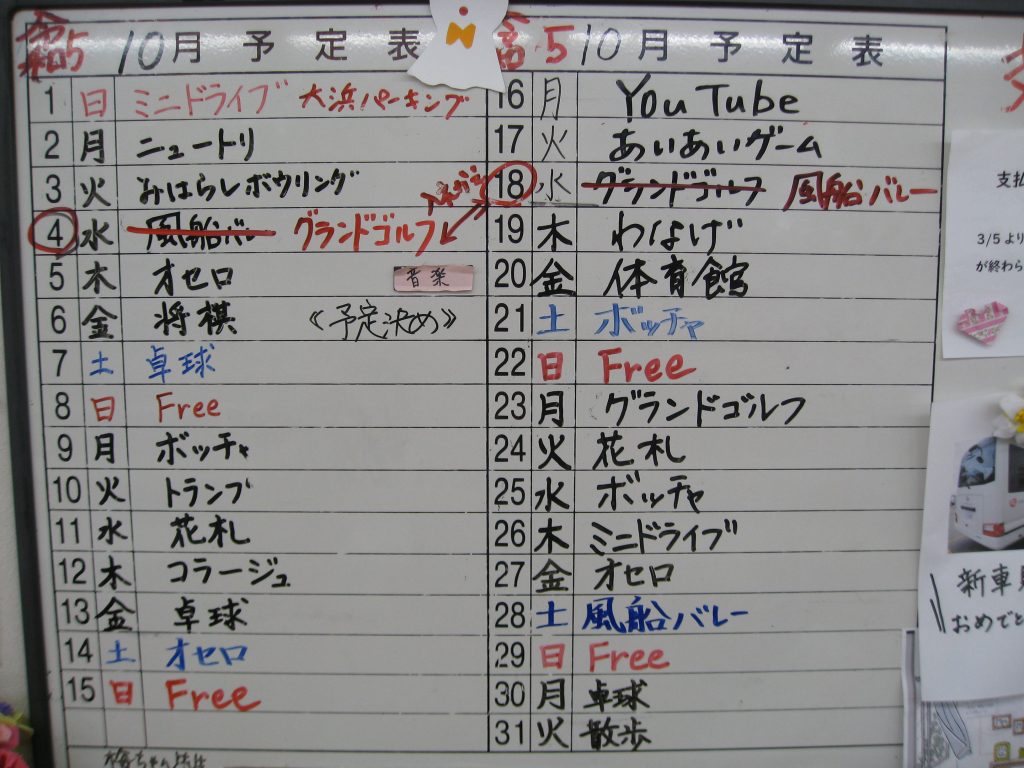 令和5 10月予定表
1 日 ミニドライブ 大浜パーキング
2 月 ニュートリ
3 火 みはらしボウリング
4 水 風船バレー グランドゴルフ
5 木 オセロ 音楽
6 金 将棋 《予定決め》
7 土 卓球
8 日 Free
9 月 ボッチャ
10 火 トランプ
11 水 花札
12 木 コラージュ
13 金 卓球
14 土 オセロ
15 日 Free
令和5 10月予定表
16 月 YouTube
17 火 あいあいゲーム
18 水 グランドゴルフ 風船バレー
19 木 わなげ
20 金 体育館
21 土 ボッチャ
22 日 Free
23 月 グランドゴルフ
24 火 花札
25 水 ボッチャ
26 木 ミニドライブ
27 金 オセロ
28 土 風船バレー
29 日 Free
30 月 卓球
31 火 散歩
支払
3/5より
が終わら
新車
おめでと